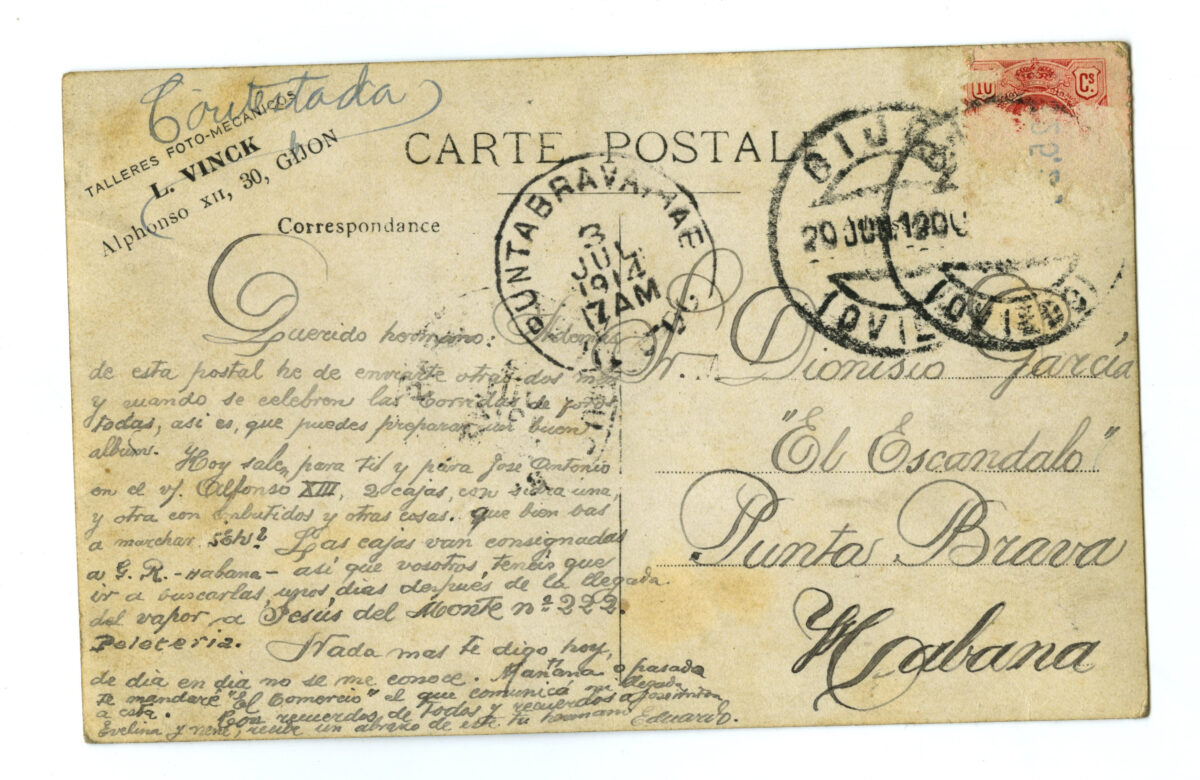 Contestada
TALLERES FOTO-MECANICOS
L. VINCK
Alphonso XII, 30, GIJON
CARTE POSTALE
Correspondance
10 Cs
GIJON
20 JUN 1900
(OVIEDO)
(OVIEDO)
PUNTABRAVA
3
JUL
1914
7 AM
Querido hermano:
de esta postal he de enviarte otras dos mas
y cuando se celebren las corridas de toros
todas, asi es, que puedes preparar un buen
album. Hoy salen para ti y para Jose Antonio
en el v/. Alfonso XIII, 2 cajas, con sidra una,
y otra con embutidos y otras cosas. que bien vas
a marchar. Las cajas van consignadas
a G. R. - Habana - asi que vosotros teneis que
ir a buscarlas, unos dias después de la llegada
del vapor a Jesús del Monte nº 222.
Peleteria. Nada mas te digo hoy,
de dia en dia no se me conoce. Mañana o pasada
te mandaré "El Comercio" el que comunica mi llegada
a esta. Con recuerdos de todos y recuerdos a
Evelina y nene, recibe un abrazo de este tu hermano Eduardo.
Sr. Dionisio García
"El Escandalo"
Punta Brava
Habana